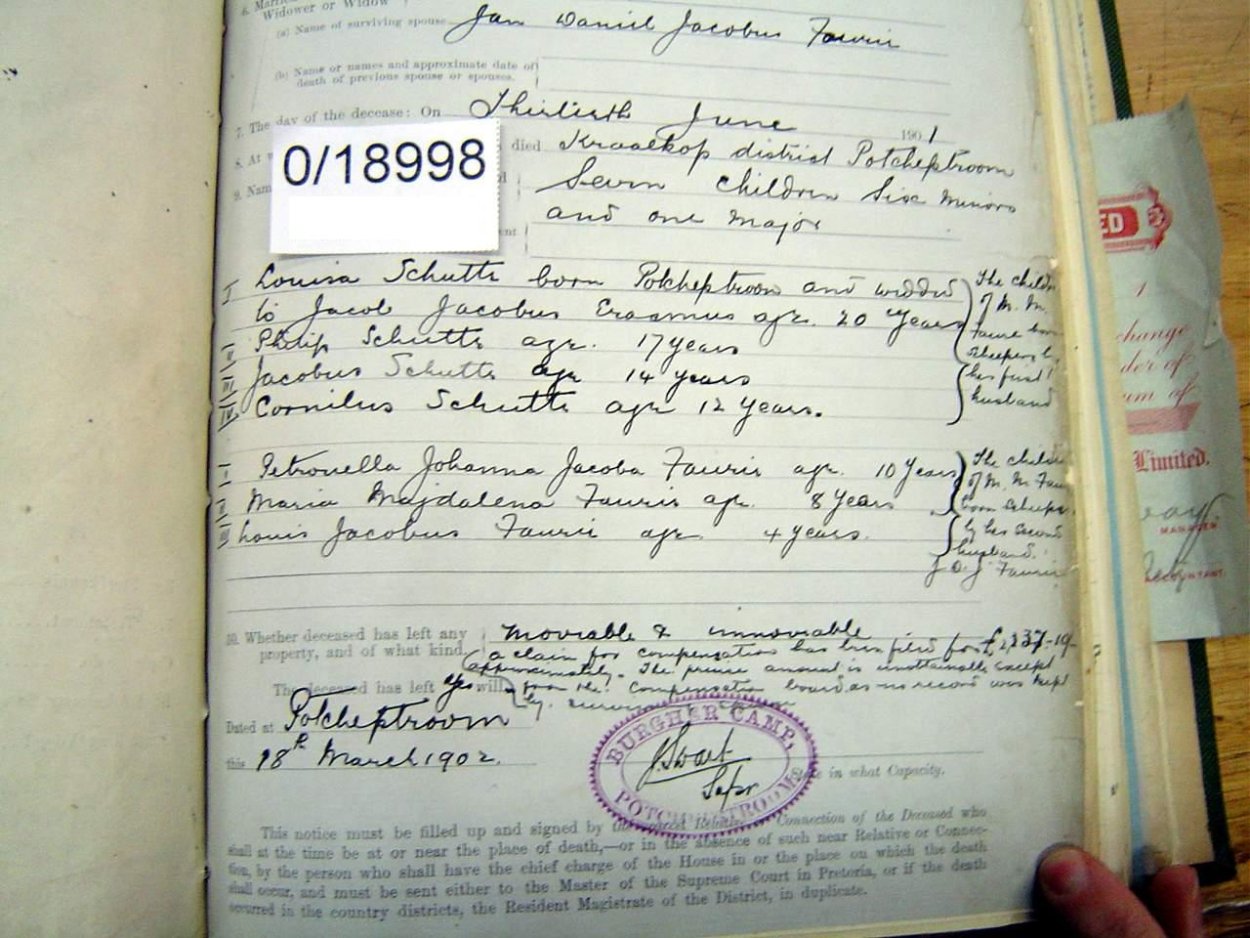 Widower or Widow
(a) Name of surviving spouse Jan Daniel Jacobus Fourie
(b) Name or names and approximate date of
death of previous spouse or spouses.
7. The day of the decease: On Thirtieth June 1901
8. At died Kraalkop district Potcheptroom
9. Nam Seven children Six Minors
and one Major
0/18998
I Louisa Schutte born Potcheptroom and wedded
to Jacob Jacobus Erasmus age. 20 Years
II Philip Schutte age. 17 years
III Jacobus Schutte age 14 years
IV Cornilus Schutte age 12 Years.
The child
of M. M.
Faurie born
by
his first
husband
I Petronella Johanna Jacoba Faurie age. 10 Years
II Maria Majdalena Faurie age. 8 Years
III Louis Jacobus Faurie age 4 years.
The child
of M. M. Fau
born
by his second
husband.
J D. J Faurie
10. Whether deceased has left any
property, and of what kind.
Movable & immovable
a claim for compensation has been filed for £2,237-19-
approximately. The precise amount is unattainable except
from the Compensation board as no record was kept
by
The deceased has left yes will
Dated at Potcheptroom
this 18th March 1902.
BURGHER CAMP,
POTCHEFSTROOM
J Swart
Supr
State in what Capacity.
This notice must be filled up and signed by the nearest Relative or Connection of the Deceased who
shall at the time be at or near the place of death,—or in the absence of such near Relative or Connec-
tion, by the person who shall have the chief charge of the House in or the place on which the death
shall occur, and must be sent either to the Master of the Supreme Court in Pretoria, or if the death
occurred in the country districts, the Resident Magistrate of the District, in duplicate.
ED
change
der of
um of
Limited.
MANAGER
ACCOUNTANT